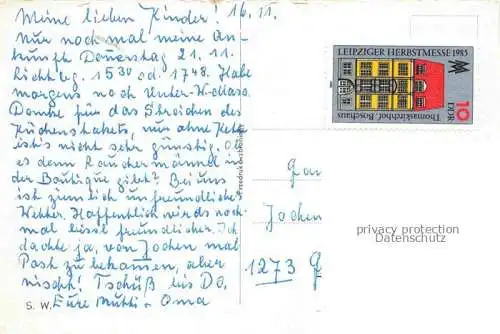 Meine lieben Kinder! 16.11.
Nur noch mal meine An-
kunft Donnerstag 21.11.
Lichtbg. 15³⁰ od. 17⁴⁸. Habe
morgens noch Unter-
Danke für das Streichen des
nur ohne
ist's nicht sehr günstig. Ob
es denn Räuchermännel in
der Boutique gibt? Bei uns
ist ziemlich unfreundliches
Wetter. Hoffentlich wird's noch-
mal bissl freundlicher. Ich
dachte ja, von Jochen mal
Post zu bekommen, aber
nischt! Tschüß bis Do.
Eure Mutti + Oma
S. W.
LEIPZIGER HERBSTMESSE 1985
Thomaskirchhof, Bosehaus
10
DDR
Jochen
1273
privacy protection
Datenschutz